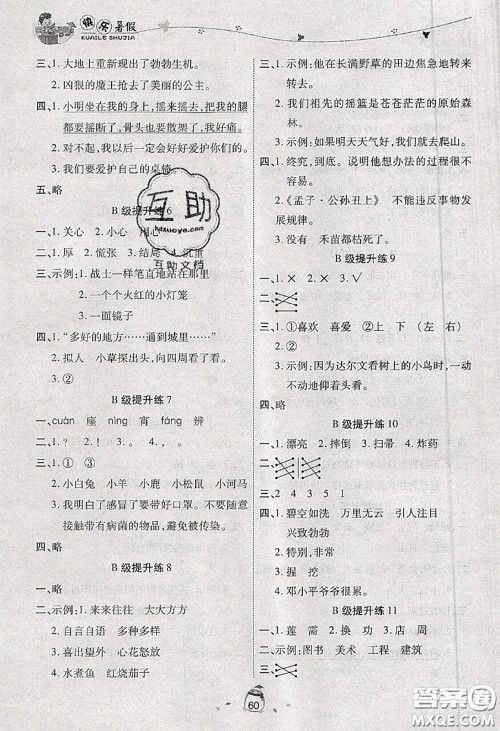 快乐暑假
KUAILE SHUJIA
三、1. 大地上重新现出了勃勃生机。
2. 凶狠的魔王抢去了美丽的公主。
四、1. 小明坐在我的身上，摇来摇去，把我的腿
都要摇断了，骨头也要散架了，我好痛。
2. 对不起，我以后一定会好好爱护你们的。
3. 我们要爱护自己的桌椅
五、略
B 级提升练 6
一、1. 关心 2. 小心 3. 用心
二、1. 厚 2. 慌张 3. 结局 4. 沉重
三、示例：1. 战士一样笔直地站在那里
2. 一个个火红的小灯笼
3. 一面镜子
四、1. “多好的地方……通到城里……”
2. 拟人 小草探出头，向四周看了看。
3. ②
B 级提升练 7
一、cuàn 座 nìng 宵 fáng 辨
二、1. ？ ！ 2. 。 3. 。 4. ， 。
三、1. ②
2. 小白兔 小羊 小鹿 小松鼠 小河马
3. 我明白了感冒了要带好口罩。不要随意
接触带有病菌的物品，避免被传染。
四、略
B 级提升练 8
一、略
二、示例：1. 来来往往 大大方方
2. 自言自语 多种多样
3. 喜出望外 心花怒放
4. 水煮鱼 红烧茄子
三、1. 示例：他在长满野草的田边焦急地转来
转去。
2. 我们祖先的摇篮是苍苍茫茫的原始森
林。
3. 示例：如果明天天气好，我们就去爬山。
四、1. 终究，到底。示例：他想办法的过程很
曲折，但终归还是想到了。
2. 《孟子·公孙丑上》 不能违反事物发
展规律。
3. 害了 禾苗都枯死了。
B 级提升练 9
一、1. × 2. × 3. √
二、
三、1. ①喜欢 喜爱 ②上 下 （左 右）
2. ③
3. 示例：因为达尔文看树上的小鸟时，一
动不动地仰着头看。
四、略
B 级提升练 10
一、1. 漂亮 2. 摔倒 3. 扫帚 4. 炸药
二、
三、2 4 3 5 1
四、1. 碧空如洗 万里无云 引人注目
兴致勃勃
2. 特别，非常
3. 握 挖
4. 邓小平爷爷很累。
B 级提升练 11
一、1. 莲 需 2. 换 功 3. 店 周
二、示例：图书 美术 工程 建筑
三、
60
互助
hdzuoye.com
互助文档
答案圈
MXQE.COM